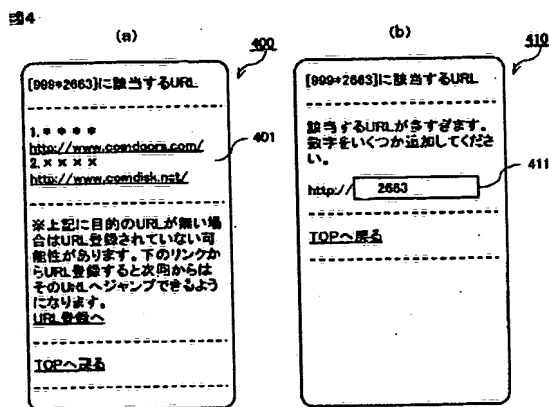 図4
(a)
400
[999*2663]に該当するURL
1.＊＊＊＊
http://www.comdoors.com/
2.××××
http://www.comdisk.net/
401
※上記に目的のURLが無い場
合はURL登録されていない可
能性があります。下のリンクか
らURL登録すると次回からは
そのURLへジャンプできるよう
になります。
URL登録へ
TOPへ戻る
(b)
410
[999*2663]に該当するURL
該当するURLが多すぎます。
数字をいくつか追加してくださ
い。
http://
2663
411
TOPへ戻る